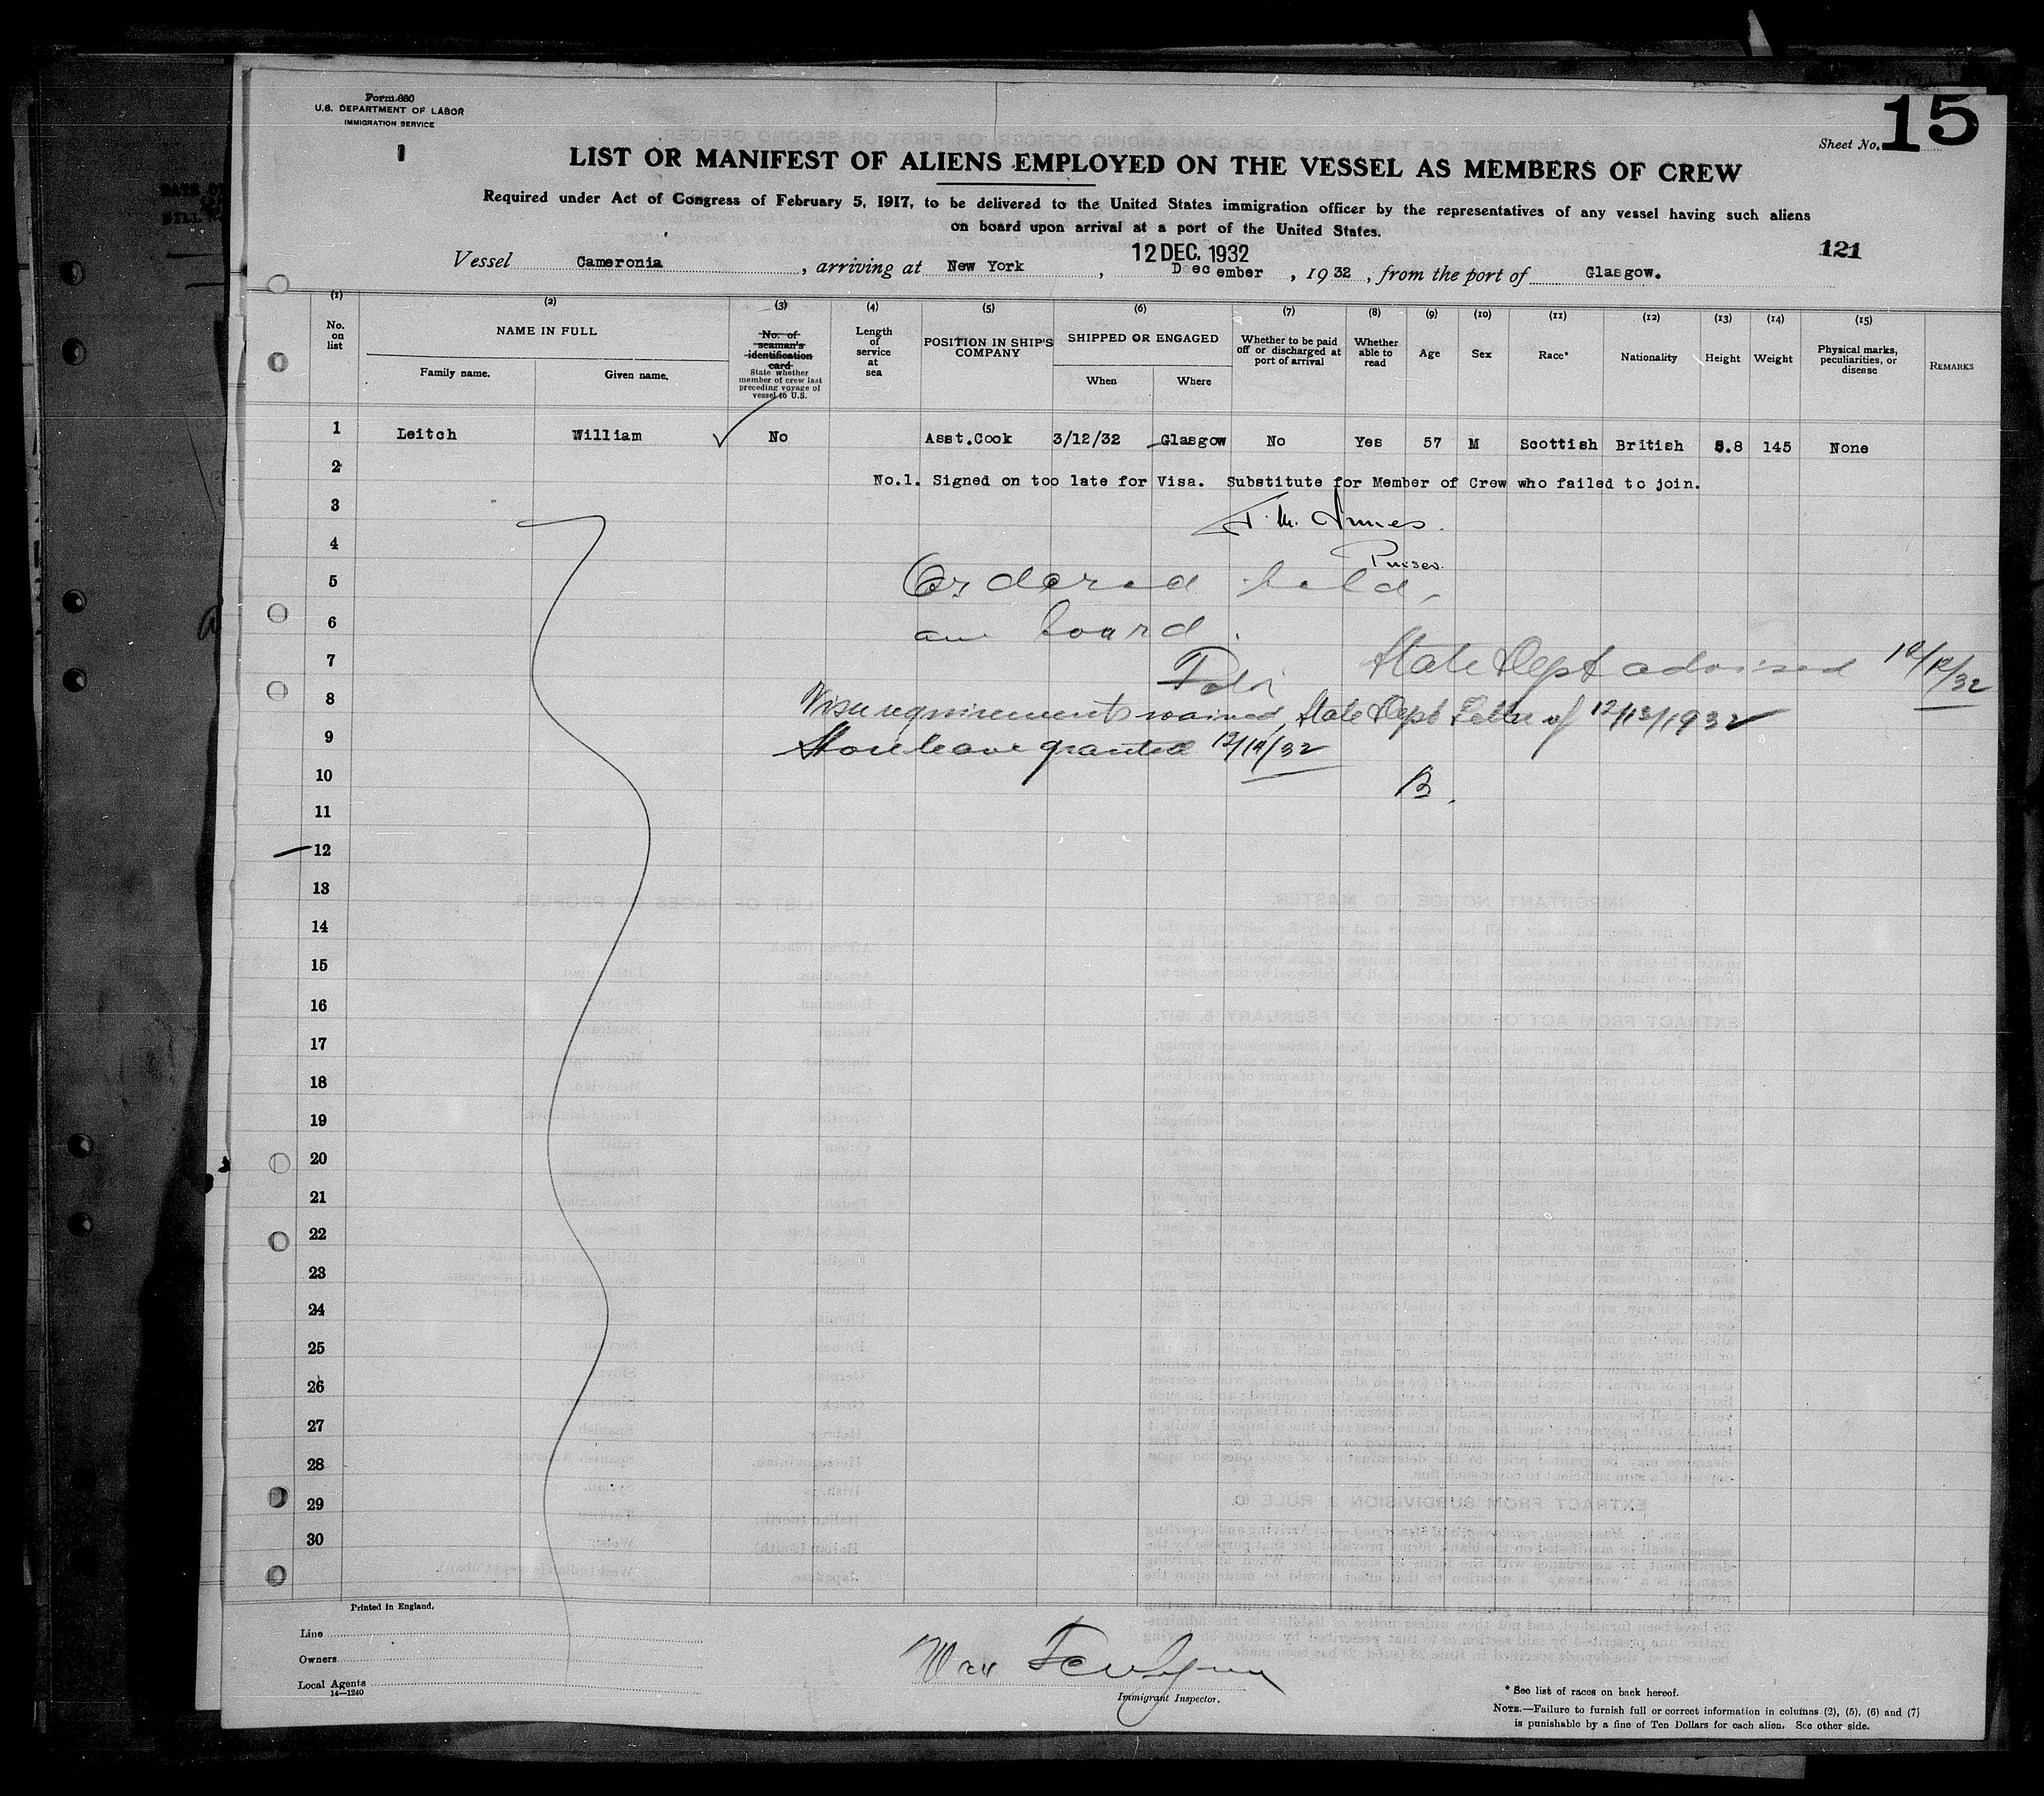 Form 680
U.S. DEPARTMENT OF LABOR
IMMIGRATION SERVICE
Sheet No. 15
LIST OR MANIFEST OF ALIENS EMPLOYED ON THE VESSEL AS MEMBERS OF CREW
Required under Act of Congress of February 5, 1917, to be delivered to the United States immigration officer by the representatives of any vessel having such aliens
on board upon arrival at a port of the United States.
121
12 DEC. 1932
Vessel Cameronia, arriving at New York, December, 1932, from the port of Glasgow.
(1) (2) (3) (4) (5) (6) (7) (8) (9) (10) (11) (12) (13) (14) (15)
No. on list
NAME IN FULL
Family name. Given name.
No. of seaman's identification card
State whether member of crew last preceding voyage of vessel to U.S.
Length of service at sea
POSITION IN SHIP'S COMPANY
SHIPPED OR ENGAGED
When Where
Whether to be paid off or discharged at port of arrival
Whether able to read
Age
Sex
Race*
Nationality
Height
Weight
Physical marks, peculiarities, or disease
REMARKS
1 Leitch William No Asst.Cook 3/12/32 Glasgow No Yes 57 M Scottish British 5.8 145 None
2 No.1. Signed on too late for Visa. Substitute for Member of Crew who failed to join.
3
4 Purser.
5 Ordered held,
6 on board.
7 State Dept advised
8 Visa requirements waived, State Dept Letter of 12/13/1932
9 Shore leave granted
10 B.
11
12
13
14
15
16
17
18
19
20
21
22
23
24
25
26
27
28
29
30
Printed in England.
Line
Owners
Local Agents
14—1240
Immigrant Inspector.
* See list of races on back hereof.
NOTE.—Failure to furnish full or correct information in columns (2), (5), (6) and (7)
is punishable by a fine of Ten Dollars for each alien. See other side.